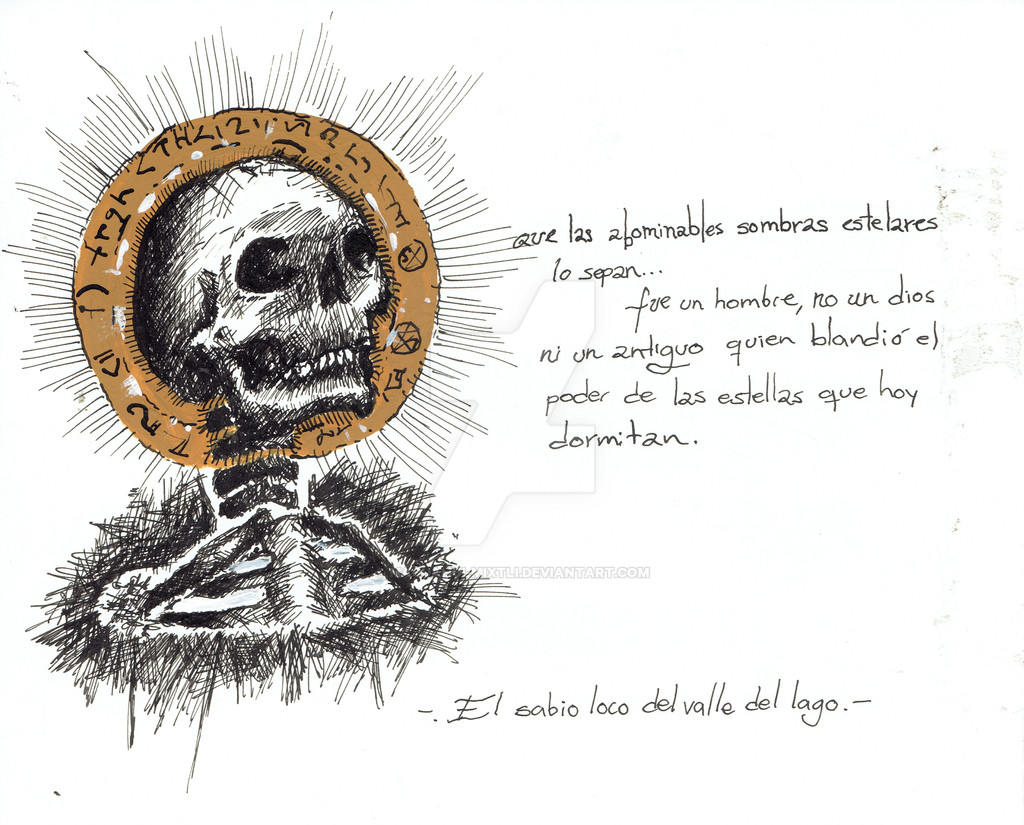 que las abominables sombras estelares
lo sepan...
fue un hombre, no un dios
ni un antiguo quien blandió el
poder de las estellas que hoy
dormitan.
-. El sabio loco del valle del lago.-